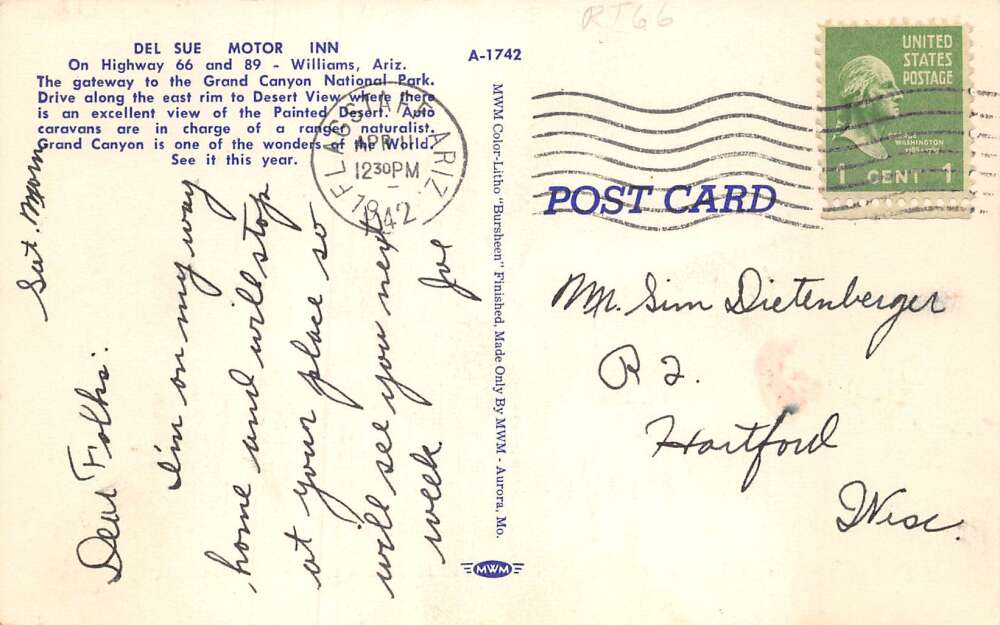 RT66
DEL SUE MOTOR INN
On Highway 66 and 89 - Williams, Ariz.
The gateway to the Grand Canyon National Park.
Drive along the east rim to Desert View where there
is an excellent view of the Painted Desert. Auto
caravans are in charge of a ranger naturalist.
Grand Canyon is one of the wonders of the World.
See it this year.
A-1742
FLAGSTAFF ARIZ.
APR 11
12 30 PM
1942
UNITED
STATES
POSTAGE
WASHINGTON
1 CENT 1
POST CARD
Sat. Morn
Dear Folks:
I'm on my way
home and will stop
at your place so
will see you next
week.
Joe
MWM Color-Litho "Bursheen" Finished, Made Only By MWM - Aurora, Mo.
MWM
Mr. Sim Dietenberger
R 2.
Hartford
Wisc.